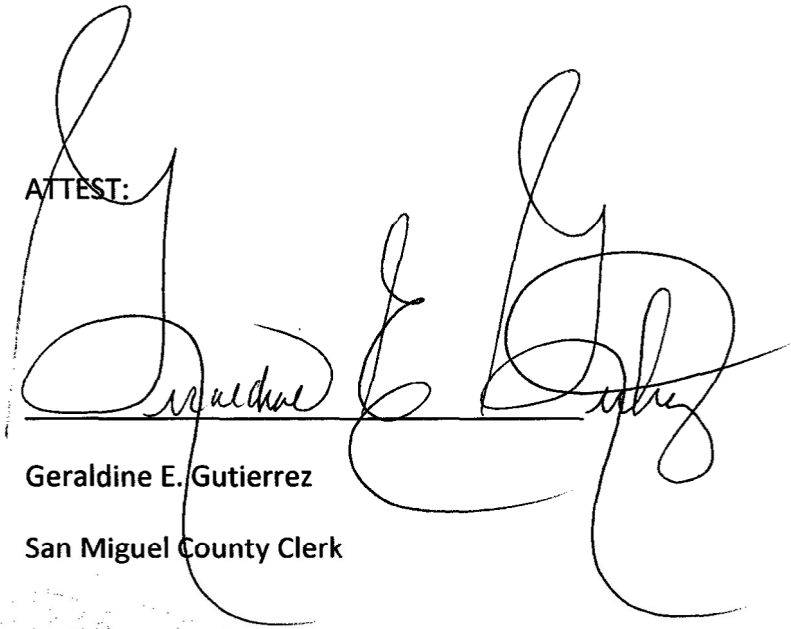 ATTEST:
Geraldine E. Gutierrez
Geraldine E. Gutierrez
San Miguel County Clerk